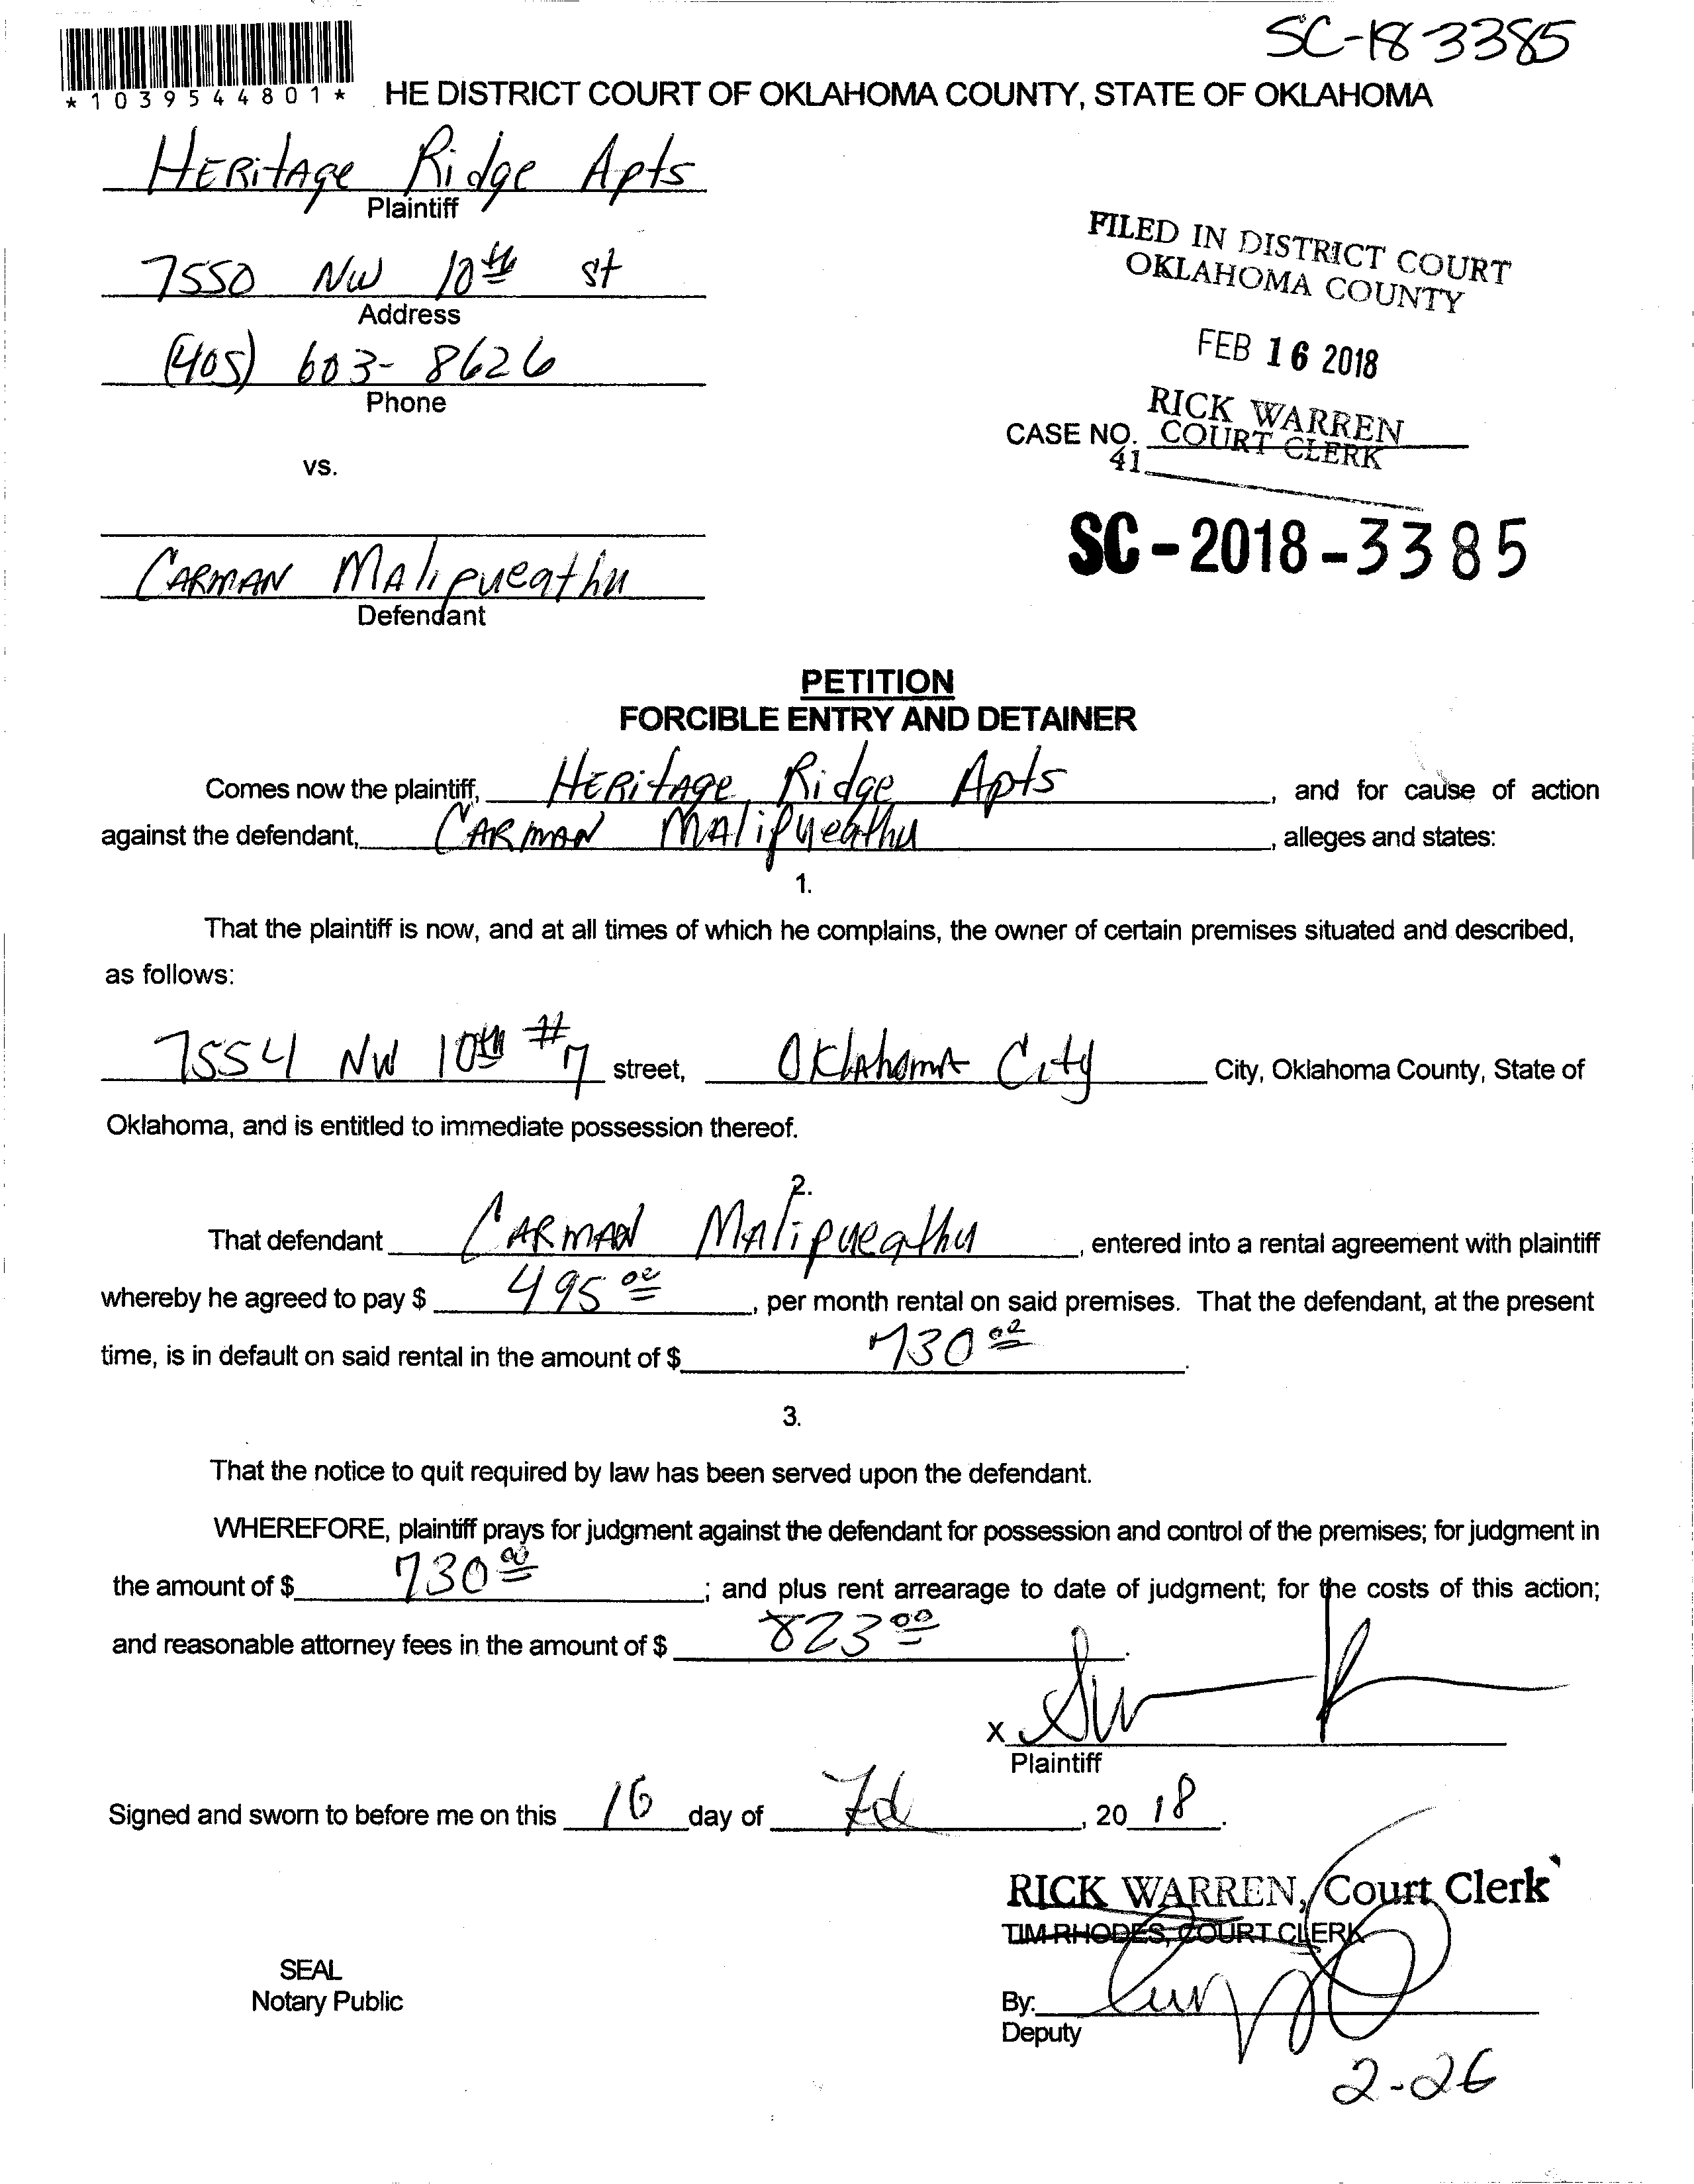 SC-18-3385
*1039544801*
HE DISTRICT COURT OF OKLAHOMA COUNTY, STATE OF OKLAHOMA
HERitAge Ridge Apts
Plaintiff
7550 NW 10th st
Address
(405) 603-8626
Phone
vs.
CARMAN MAlipueathu
Defendant
FILED IN DISTRICT COURT
OKLAHOMA COUNTY
FEB 16 2018
RICK WARREN
COURT CLERK
CASE NO.
41
SC-2018-3385
PETITION
FORCIBLE ENTRY AND DETAINER
Comes now the plaintiff, HERitAge Ridge Apts, and for cause of action
against the defendant, CARMAN MAlipueathu, alleges and states:
1.
That the plaintiff is now, and at all times of which he complains, the owner of certain premises situated and described,
as follows:
7554 NW 10th #7 street, OklAhomA City City, Oklahoma County, State of
Oklahoma, and is entitled to immediate possession thereof.
2.
That defendant CARMAN MAlipueathu, entered into a rental agreement with plaintiff
whereby he agreed to pay $ 495 00, per month rental on said premises. That the defendant, at the present
time, is in default on said rental in the amount of $ 730 00.
3.
That the notice to quit required by law has been served upon the defendant.
WHEREFORE, plaintiff prays for judgment against the defendant for possession and control of the premises; for judgment in
the amount of $ 730 00; and plus rent arrearage to date of judgment; for the costs of this action;
and reasonable attorney fees in the amount of $ 823 00.
X
Plaintiff
Signed and sworn to before me on this 16 day of Feb, 2018.
RICK WARREN, Court Clerk
TIM RHODES, COURT CLERK
SEAL
Notary Public
By:
Deputy
2-26